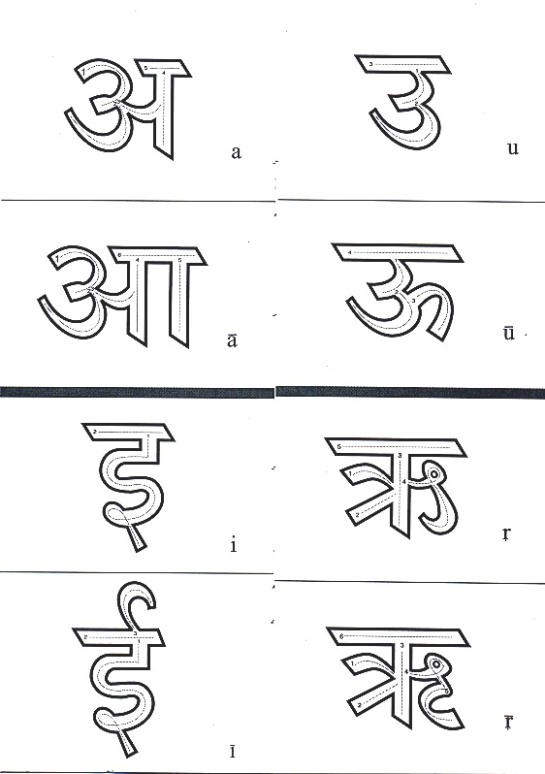 अ a
उ u
आ ā
ऊ ū
इ i
ऋ ṛ
ई ī
ॠ ṝ